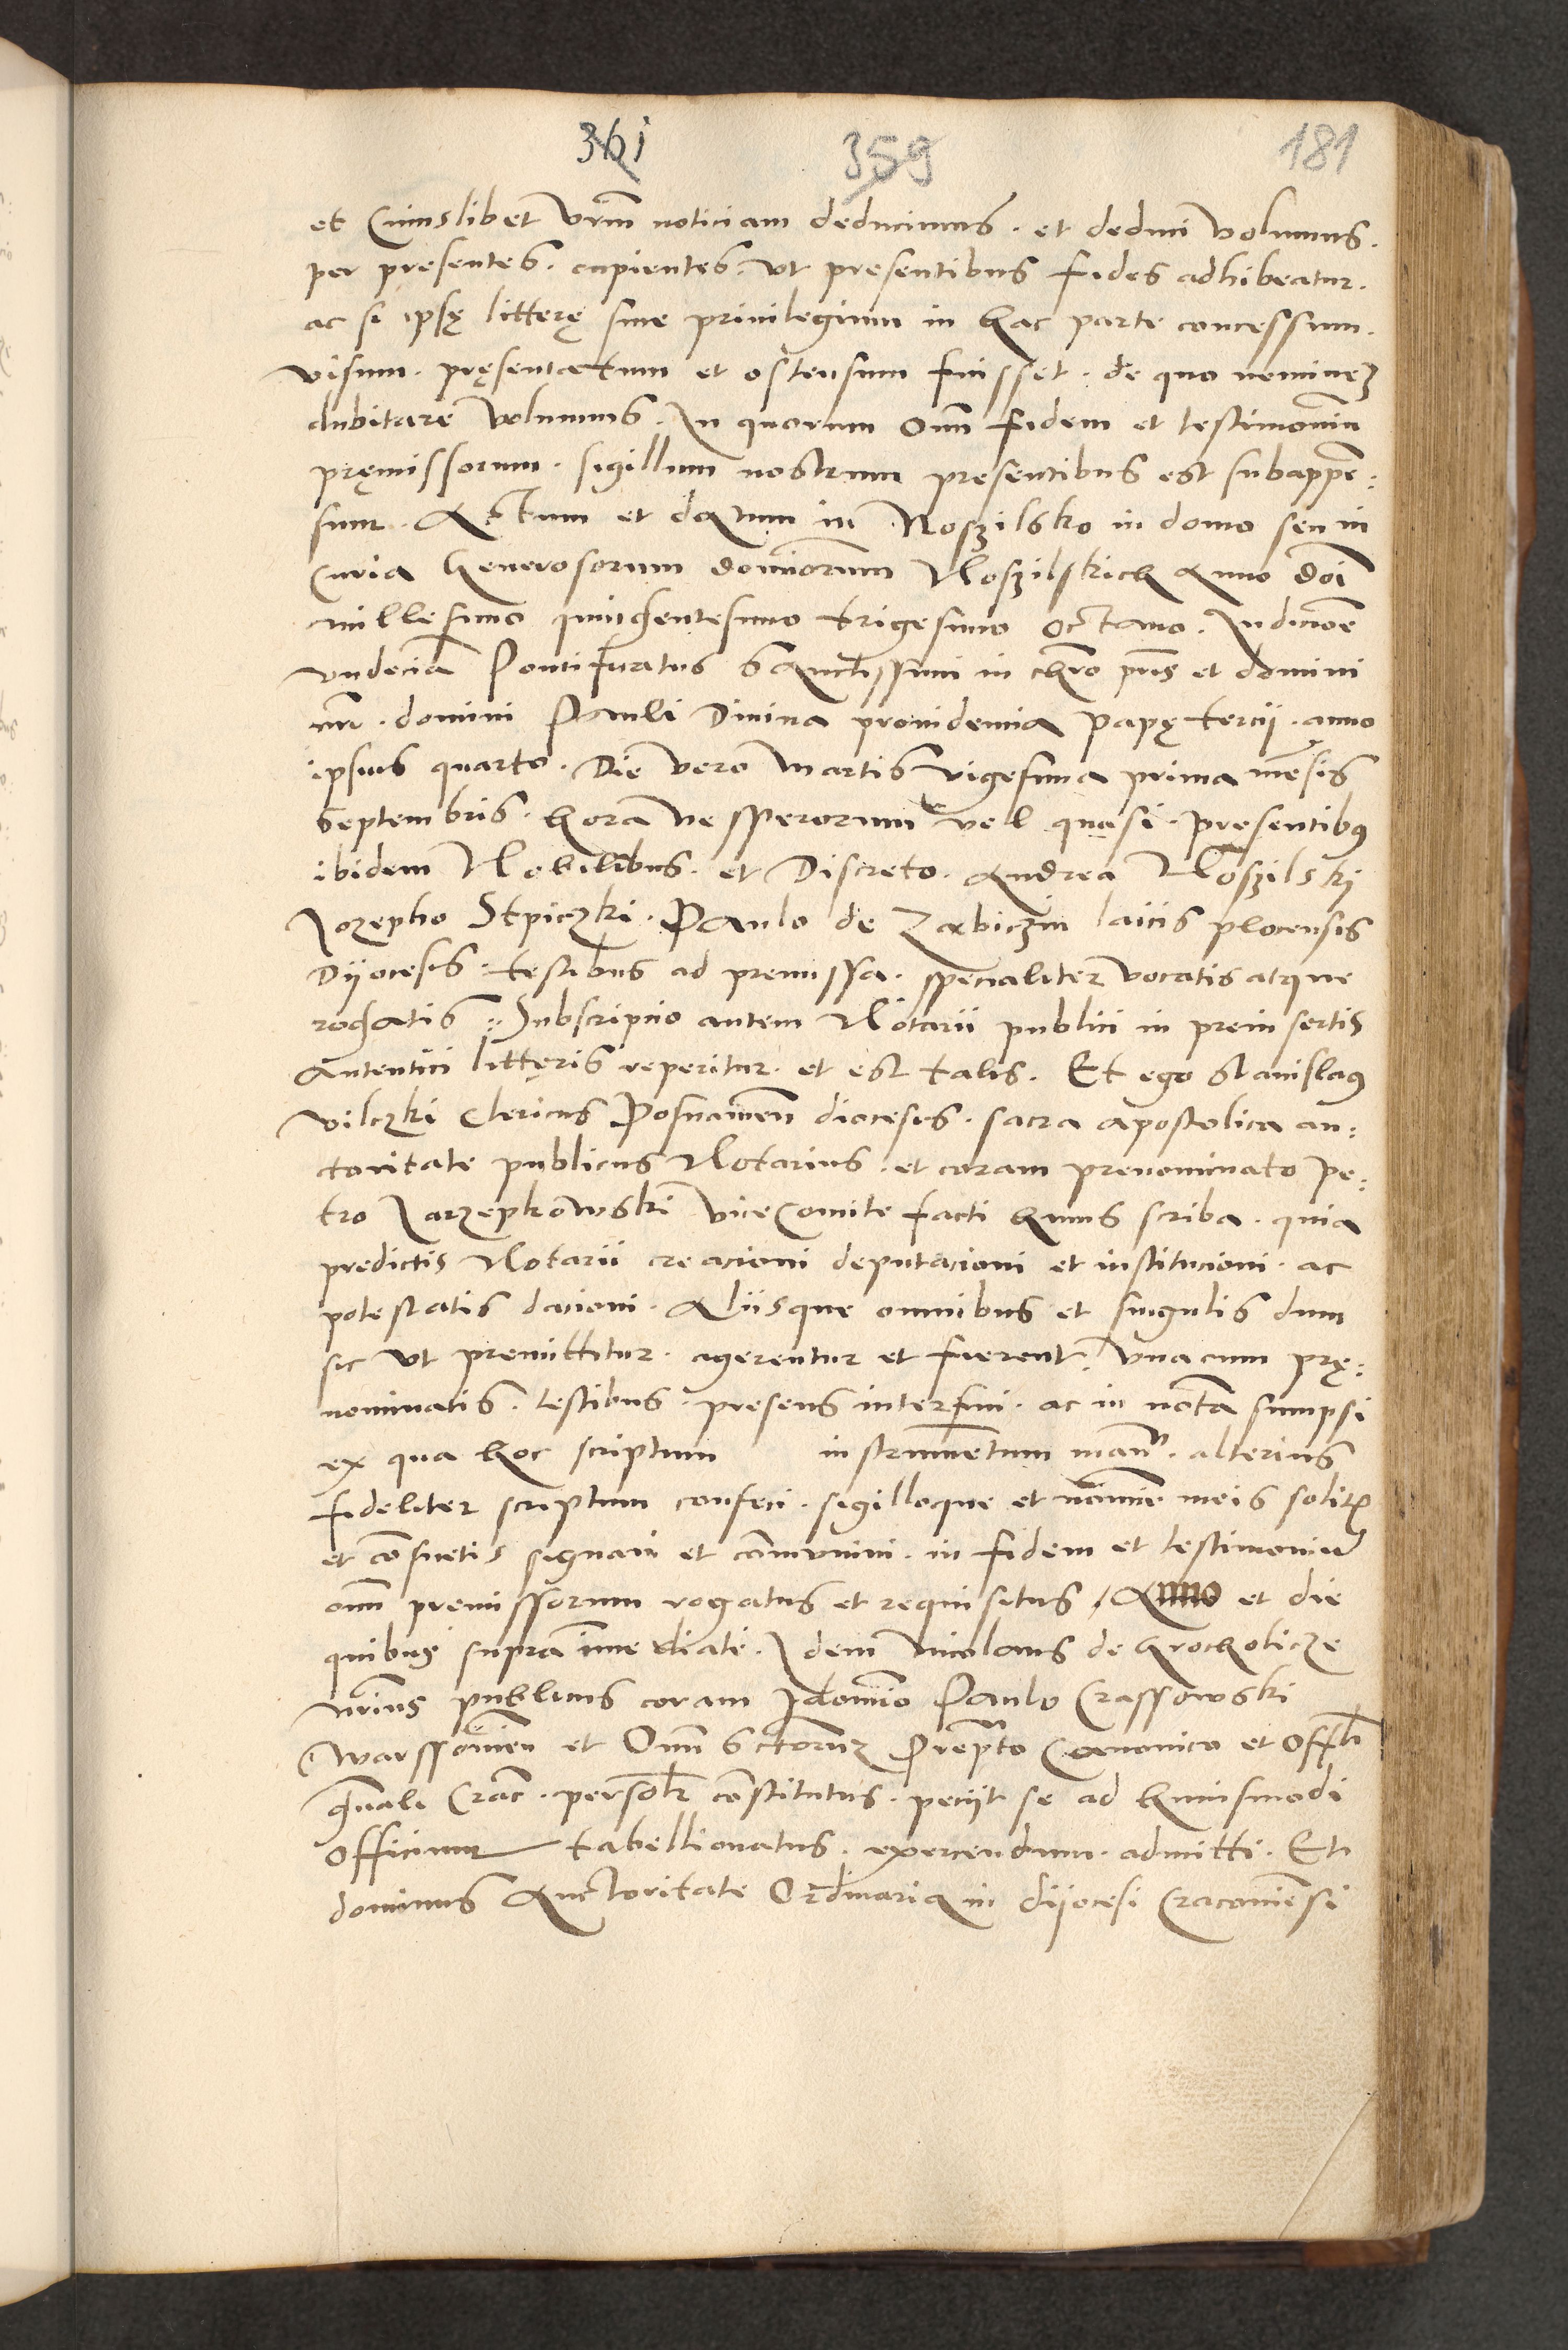 361 359 181
et Cuiuslibet vrm̃ noticiam deducimus. et deduci volumus.
per presentes. cupientes. vt presentibus fides adhibeatur.
ac si ipsę litterę siue priuilegium in hac parte concessum.
visum. pręsentatum et ostensum fuisset. de quo neminem
dubitare volumus. In quorum om̃ fidem et testimoniũ
pręmissorum. sigillum nostrum presentibus est subappen:
sum. Actum et datum in Noszilsko in domo seu in
Curia Generosorum dominorum Noszilskich Anno doĩ
millesimo quingentesimo trigesimo octauo. Indicione
vndecima Pontificatus Sanctissimi in chro prĩs et domini
nrĩ. domini Pauli Diuina prouidencia papę tercij. anno
ipsius quarto. Die vero Martis vigesima prima mẽsis
Septembris. hora vesperorum vel quasi. presentibus
ibidem Nobilibus. et Discreto. Andrea Noszilskj
Jozepho Stpiczki. Paulo de Zabiczin laicis plocensis
Dyocesis. testibus ad premissa. specialiter vocatis atque
rogatis :: Subscripcio autem Notarii publici in preinsertis
Autentici litteris reperitur. et est talis. Et ego Stanislaus
vilczki Clericus Posnanien̄ diocesis. sacra apostolica au:
ctoritate publicus Notarius. et coram prenominato Pe:
tro Jarzepkowski ViceComite facti huius scriba. quia
predictis Notarii creacioni deputacioni et institucioni. ac
potestatis dacioni. Aliisque omnibus et singulis dum
sic vt premittitur. agerentur et fierent. vna cum prę:
nominatis. testibus. presens interfui. ac in notã sumpsi
ex qua hoc scriptum instrumẽtum manu. alterius
fideliter scriptum confeci. sigilloque et nomine meis solitis
et cõsuetis signaui et cõmuniui. in fidem et testimoniũ
om̃ premissorum rogatus et requisitus. Anno et die
quibus supra immediate. Idem Nicolaus de Grocholicze
Nrius publicus coram R domino Paulo Crassowski
Warssouien̄ et Om̃ Sctorum Preposito Canonico et Offli
gñali Crac̃. personalr cõstitutus. peciit se ad huiusmodi
officium tabellionatus. exercendum. admitti. Et
dominus Auctoritate Ordinaria in dyocesi Cracouiensi